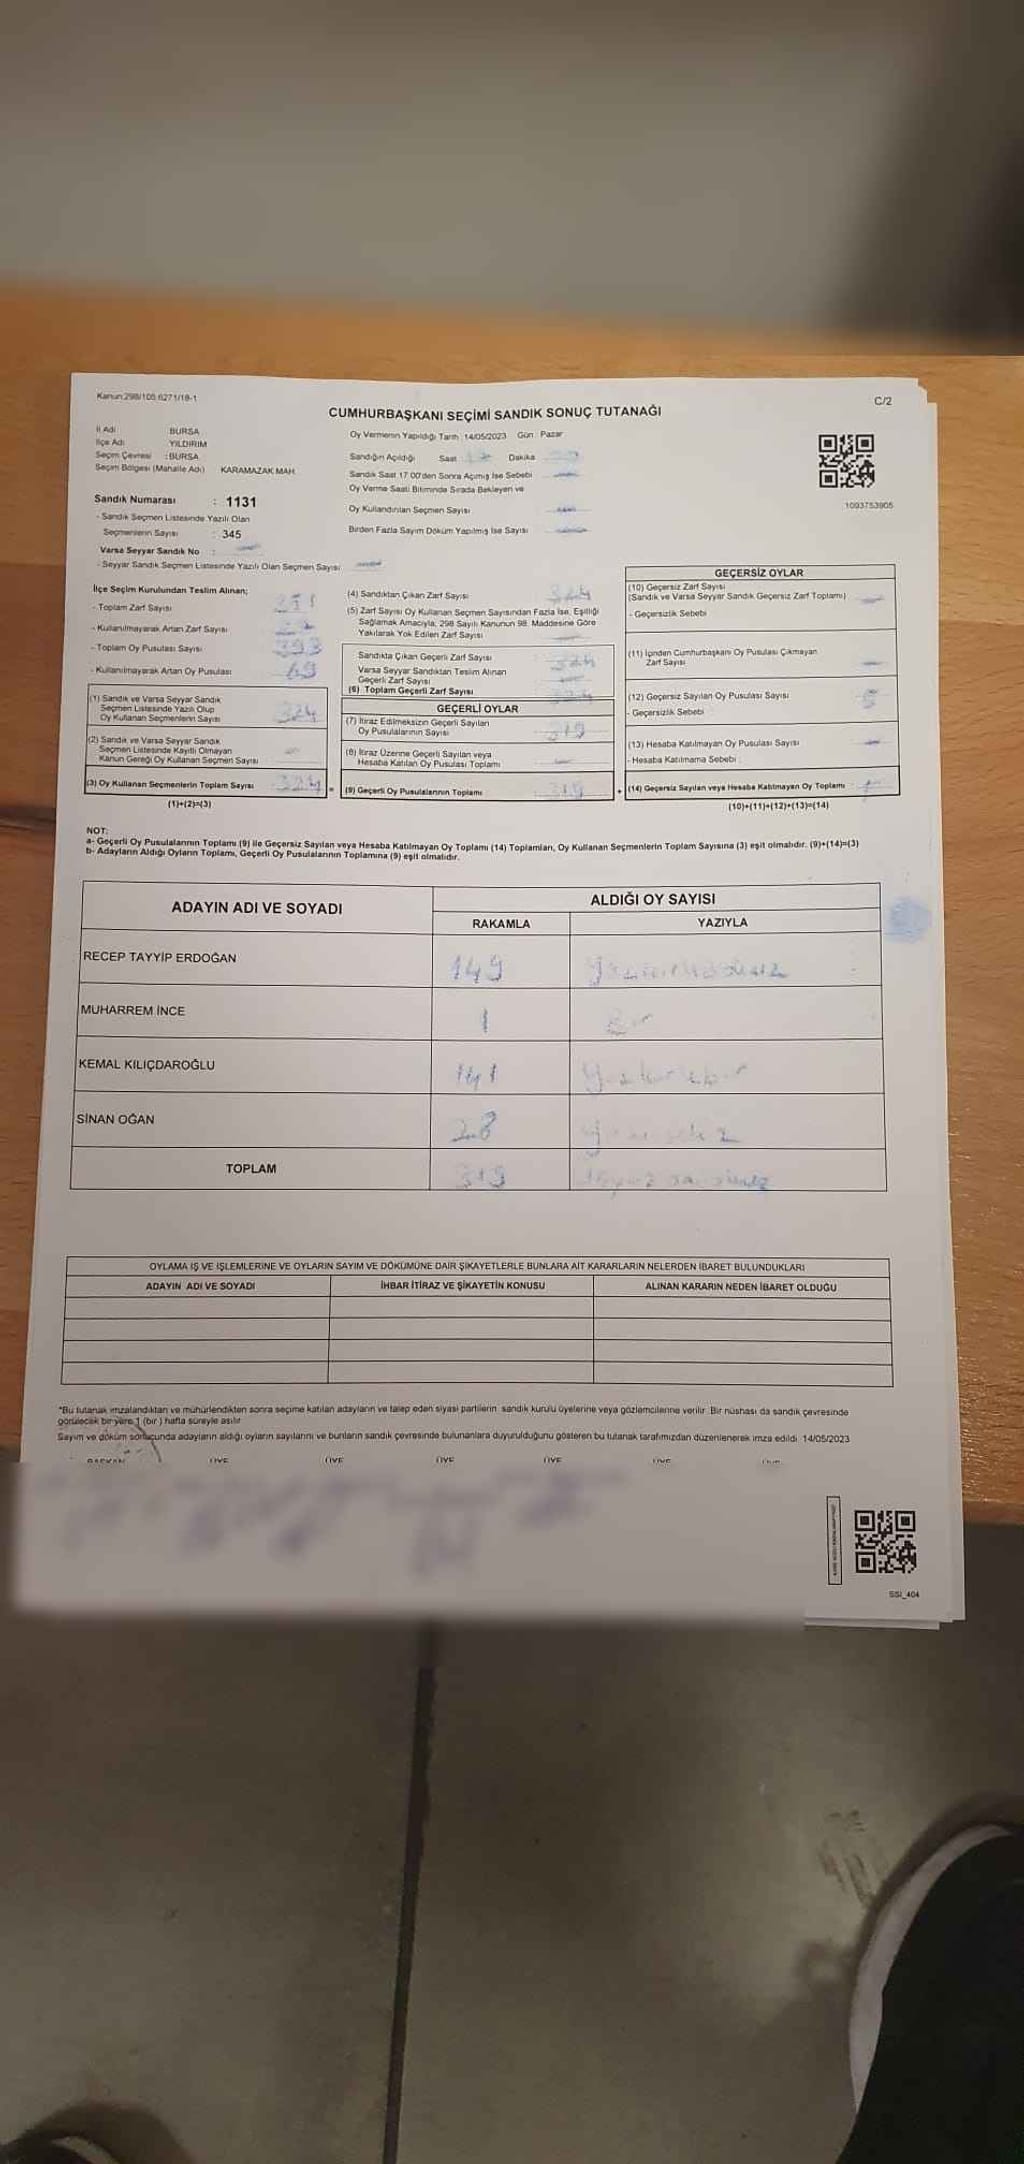 Kanun:298/105,6271/18-1
C/2
CUMHURBAŞKANI SEÇİMİ SANDIK SONUÇ TUTANAĞI
İl Adı BURSA
İlçe Adı YILDIRIM
Seçim Çevresi : BURSA
Seçim Bölgesi (Mahalle Adı) KARAMAZAK MAH.
Sandık Numarası : 1131
- Sandık Seçmen Listesinde Yazılı Olan
Seçmenlerin Sayısı : 345
Varsa Seyyar Sandık No :
- Seyyar Sandık Seçmen Listesinde Yazılı Olan Seçmen Sayısı
Oy Vermenin Yapıldığı Tarih 14/05/2023 Gün Pazar
Sandığın Açıldığı Saat Dakika
Sandık Saat 17:00'den Sonra Açımış İse Sebebi
Oy Verme Saati Bitiminde Sırada Bekleyen ve
Oy Kullandırılan Seçmen Sayısı
Birden Fazla Sayım Döküm Yapılmış İse Sayısı
1093753905
İlçe Seçim Kurulundan Teslim Alınan;
- Toplam Zarf Sayısı
- Kullanılmayarak Artan Zarf Sayısı
- Toplam Oy Pusulası Sayısı 393
- Kullanılmayarak Artan Oy Pusulası 69
(1) Sandık ve Varsa Seyyar Sandık
Seçmen Listesinde Yazılı Olup
Oy Kullanan Seçmenlerin Sayısı 324
(2) Sandık ve Varsa Seyyar Sandık
Seçmen Listesinde Kayıtlı Olmayan
Kanun Gereği Oy Kullanan Seçmen Sayısı
(3) Oy Kullanan Seçmenlerin Toplam Sayısı 324 =
(1)+(2)=(3)
(4) Sandıktan Çıkan Zarf Sayısı 324
(5) Zarf Sayısı Oy Kullanan Seçmen Sayısından Fazla İse, Eşitliği
Sağlamak Amacıyla, 298 Sayılı Kanunun 98. Maddesine Göre
Yakılarak Yok Edilen Zarf Sayısı
Sandıkta Çıkan Geçerli Zarf Sayısı 324
Varsa Seyyar Sandıktan Teslim Alınan
Geçerli Zarf Sayısı
(6) Toplam Geçerli Zarf Sayısı 324
GEÇERLİ OYLAR
(7) İtiraz Edilmeksizin Geçerli Sayılan
Oy Pusulalarının Sayısı 319
(8) İtiraz Üzerine Geçerli Sayılan veya
Hesaba Katılan Oy Pusulası Toplamı
(9) Geçerli Oy Pusulalarının Toplamı 319 +
GEÇERSİZ OYLAR
(10) Geçersiz Zarf Sayısı
(Sandık ve Varsa Seyyar Sandık Geçersiz Zarf Toplamı)
- Geçersizlik Sebebi
(11) İçinden Cumhurbaşkanı Oy Pusulası Çıkmayan
Zarf Sayısı
(12) Geçersiz Sayılan Oy Pusulası Sayısı 5
- Geçersizlik Sebebi
(13) Hesaba Katılmayan Oy Pusulası Sayısı
- Hesaba Katılmama Sebebi
(14) Geçersiz Sayılan veya Hesaba Katılmayan Oy Toplamı
(10)+(11)+(12)+(13)=(14)
NOT:
a- Geçerli Oy Pusulalarının Toplamı (9) ile Geçersiz Sayılan veya Hesaba Katılmayan Oy Toplamı (14) Toplamları, Oy Kullanan Seçmenlerin Toplam Sayısına (3) eşit olmalıdır. (9)+(14)=(3)
b- Adayların Aldığı Oyların Toplamı, Geçerli Oy Pusulalarının Toplamına (9) eşit olmalıdır.
ADAYIN ADI VE SOYADI
ALDIĞI OY SAYISI
RAKAMLA YAZIYLA
RECEP TAYYİP ERDOĞAN 149
MUHARREM İNCE 1 Bir
KEMAL KILIÇDAROĞLU 141
SİNAN OĞAN 28
TOPLAM 319
OYLAMA İŞ VE İŞLEMLERİNE VE OYLARIN SAYIM VE DÖKÜMÜNE DAİR ŞİKAYETLERLE BUNLARA AİT KARARLARIN NELERDEN İBARET BULUNDUKLARI
ADAYIN ADI VE SOYADI İHBAR İTİRAZ VE ŞİKAYETİN KONUSU ALINAN KARARIN NEDEN İBARET OLDUĞU
*Bu tutanak imzalandıktan ve mühürlendikten sonra seçime katılan adayların ve talep eden siyasi partilerin sandık kurulu üyelerine veya gözlemcilerine verilir. Bir nüshası da sandık çevresinde
görülecek bir yere 1 (bir) hafta süreyle asılır
Sayım ve döküm sonucunda adayların aldığı oyların sayılarını ve bunların sandık çevresinde bulunanlara duyurulduğunu gösteren bu tutanak tarafımızdan düzenlenerek imza edildi. 14/05/2023
BAŞKAN ÜYE ÜYE ÜYE ÜYE ÜYE
SSI_404